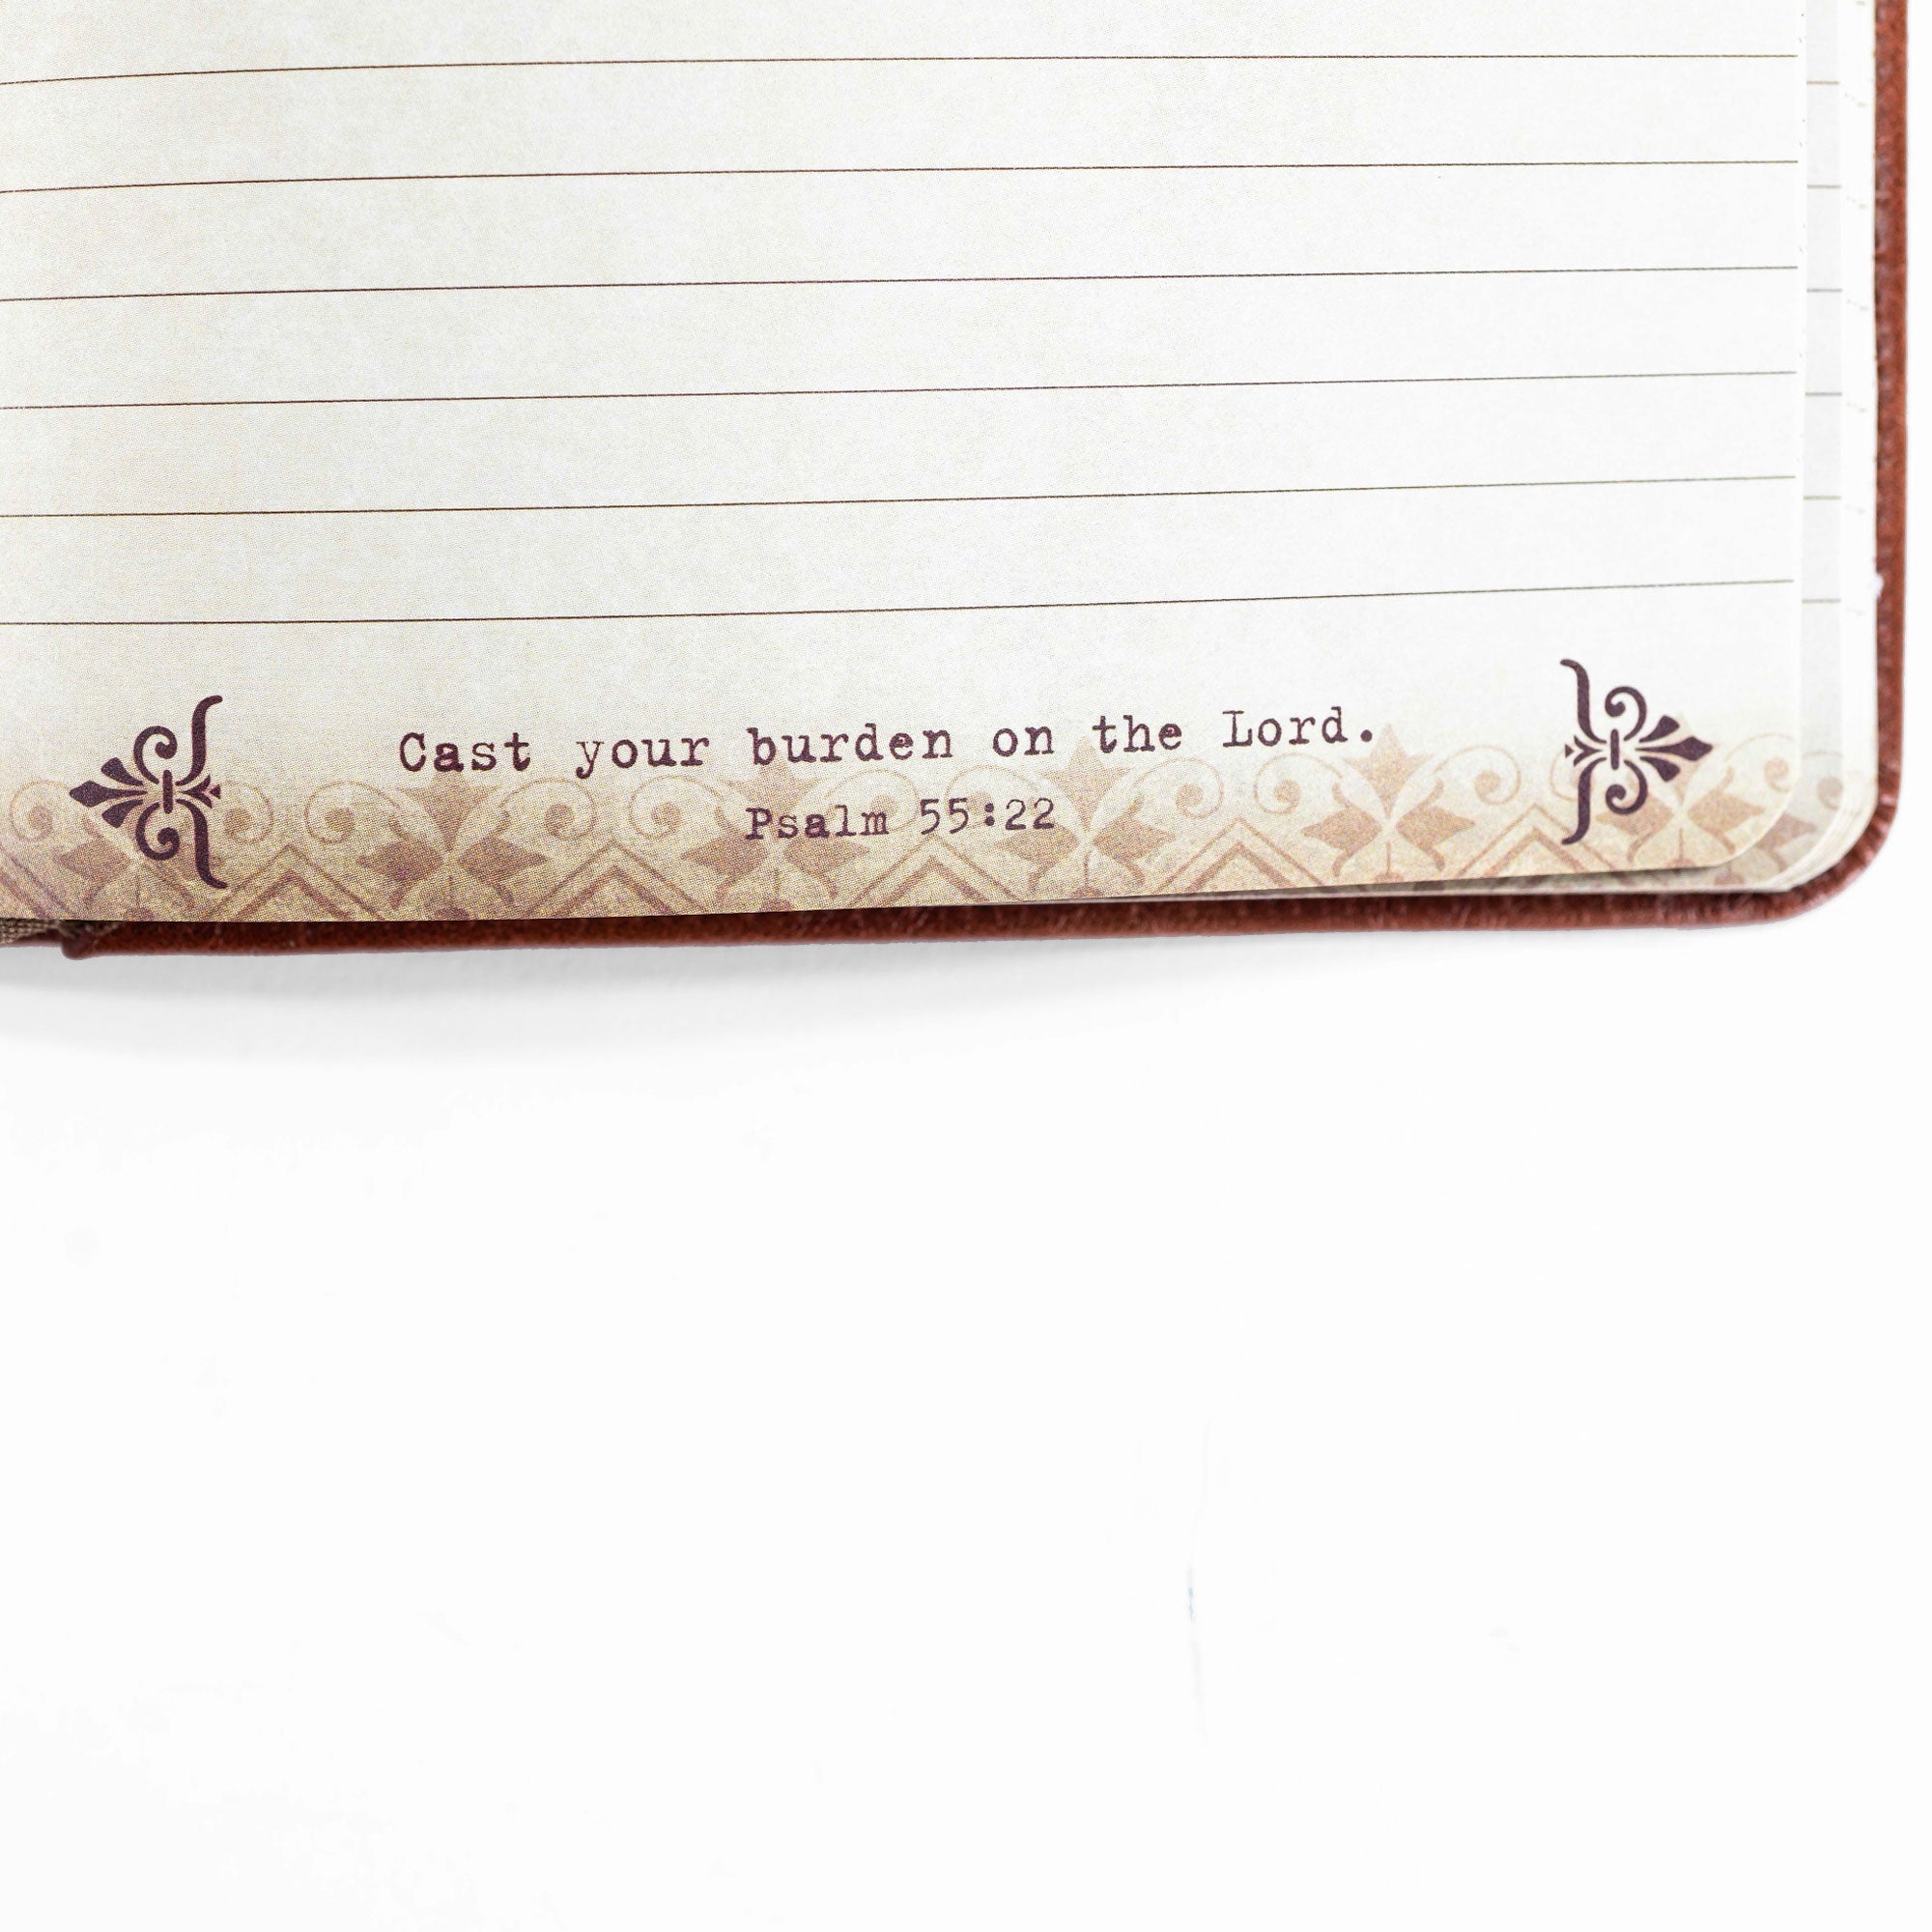 Cast your burden on the Lord.
Psalm 55:22